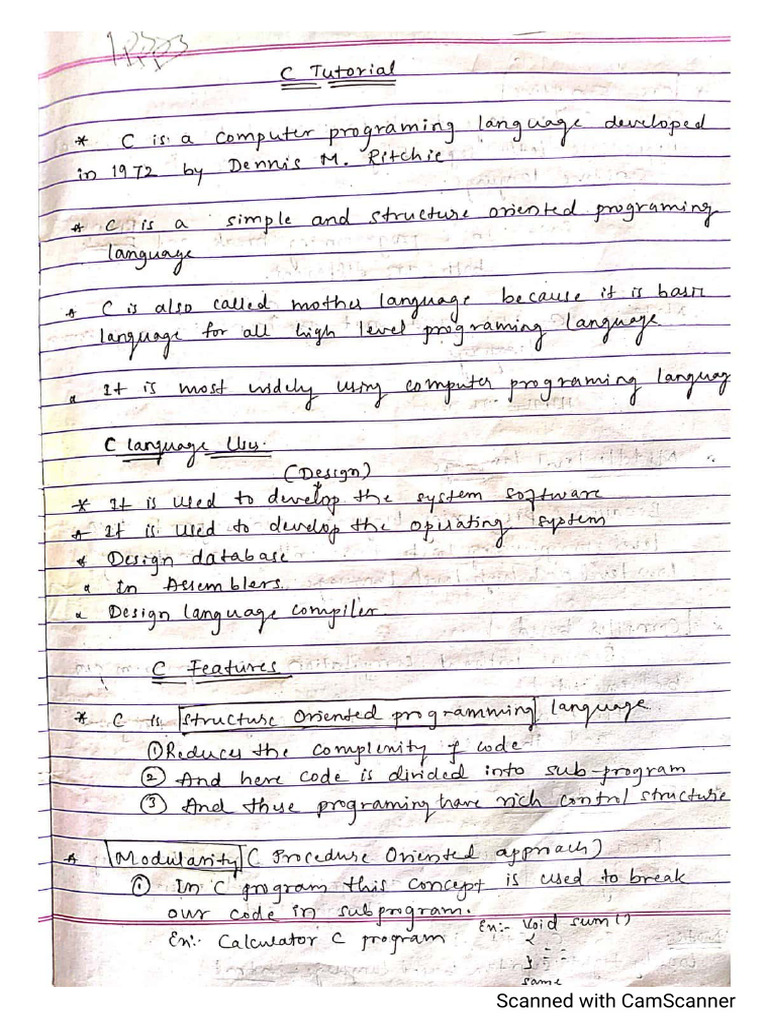 C Tutorial
* C is a computer programing language developed
in 1972 by Dennis M. Ritchie
* C is a simple and structure oriented programing
language
* C is also called mother language because it is basic
language for all high level programing language
* It is most widely using computer programing languag
C language Uses.
(Design)
* It is used to develop the system software
* It is used to develop the operating system
* Design database
* In Assemblers.
* Design language compiler
C Features
* C is Structure Oriented programming language
① Reduces the complexity of code
② And here code is divided into sub-program
③ And these programing have rich control structure
* Modularity (Procedure Oriented approach)
① In C program this concept is used to break
our code in subprogram.
Ex:- Calculator C program Ex:- Void sum()
{
- -
} - -
same
Scanned with CamScanner